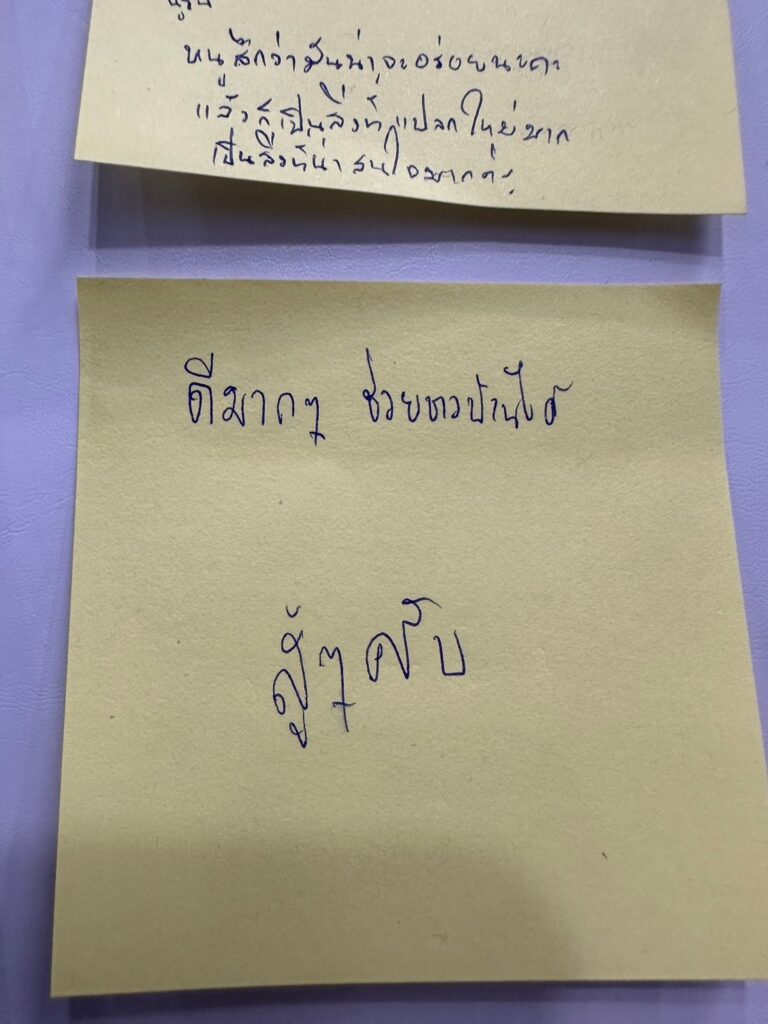 หนูสึกว่ามันน่าจะอร่อยนะคะ
แล้วก็เป็นสิ่งที่แปลกใหม่มาก
เป็นสิ่งที่น่าสนใจมากค่ะ
ดีมากๆ ช่วยชาวบ้านได้
สู้ๆ ครับ